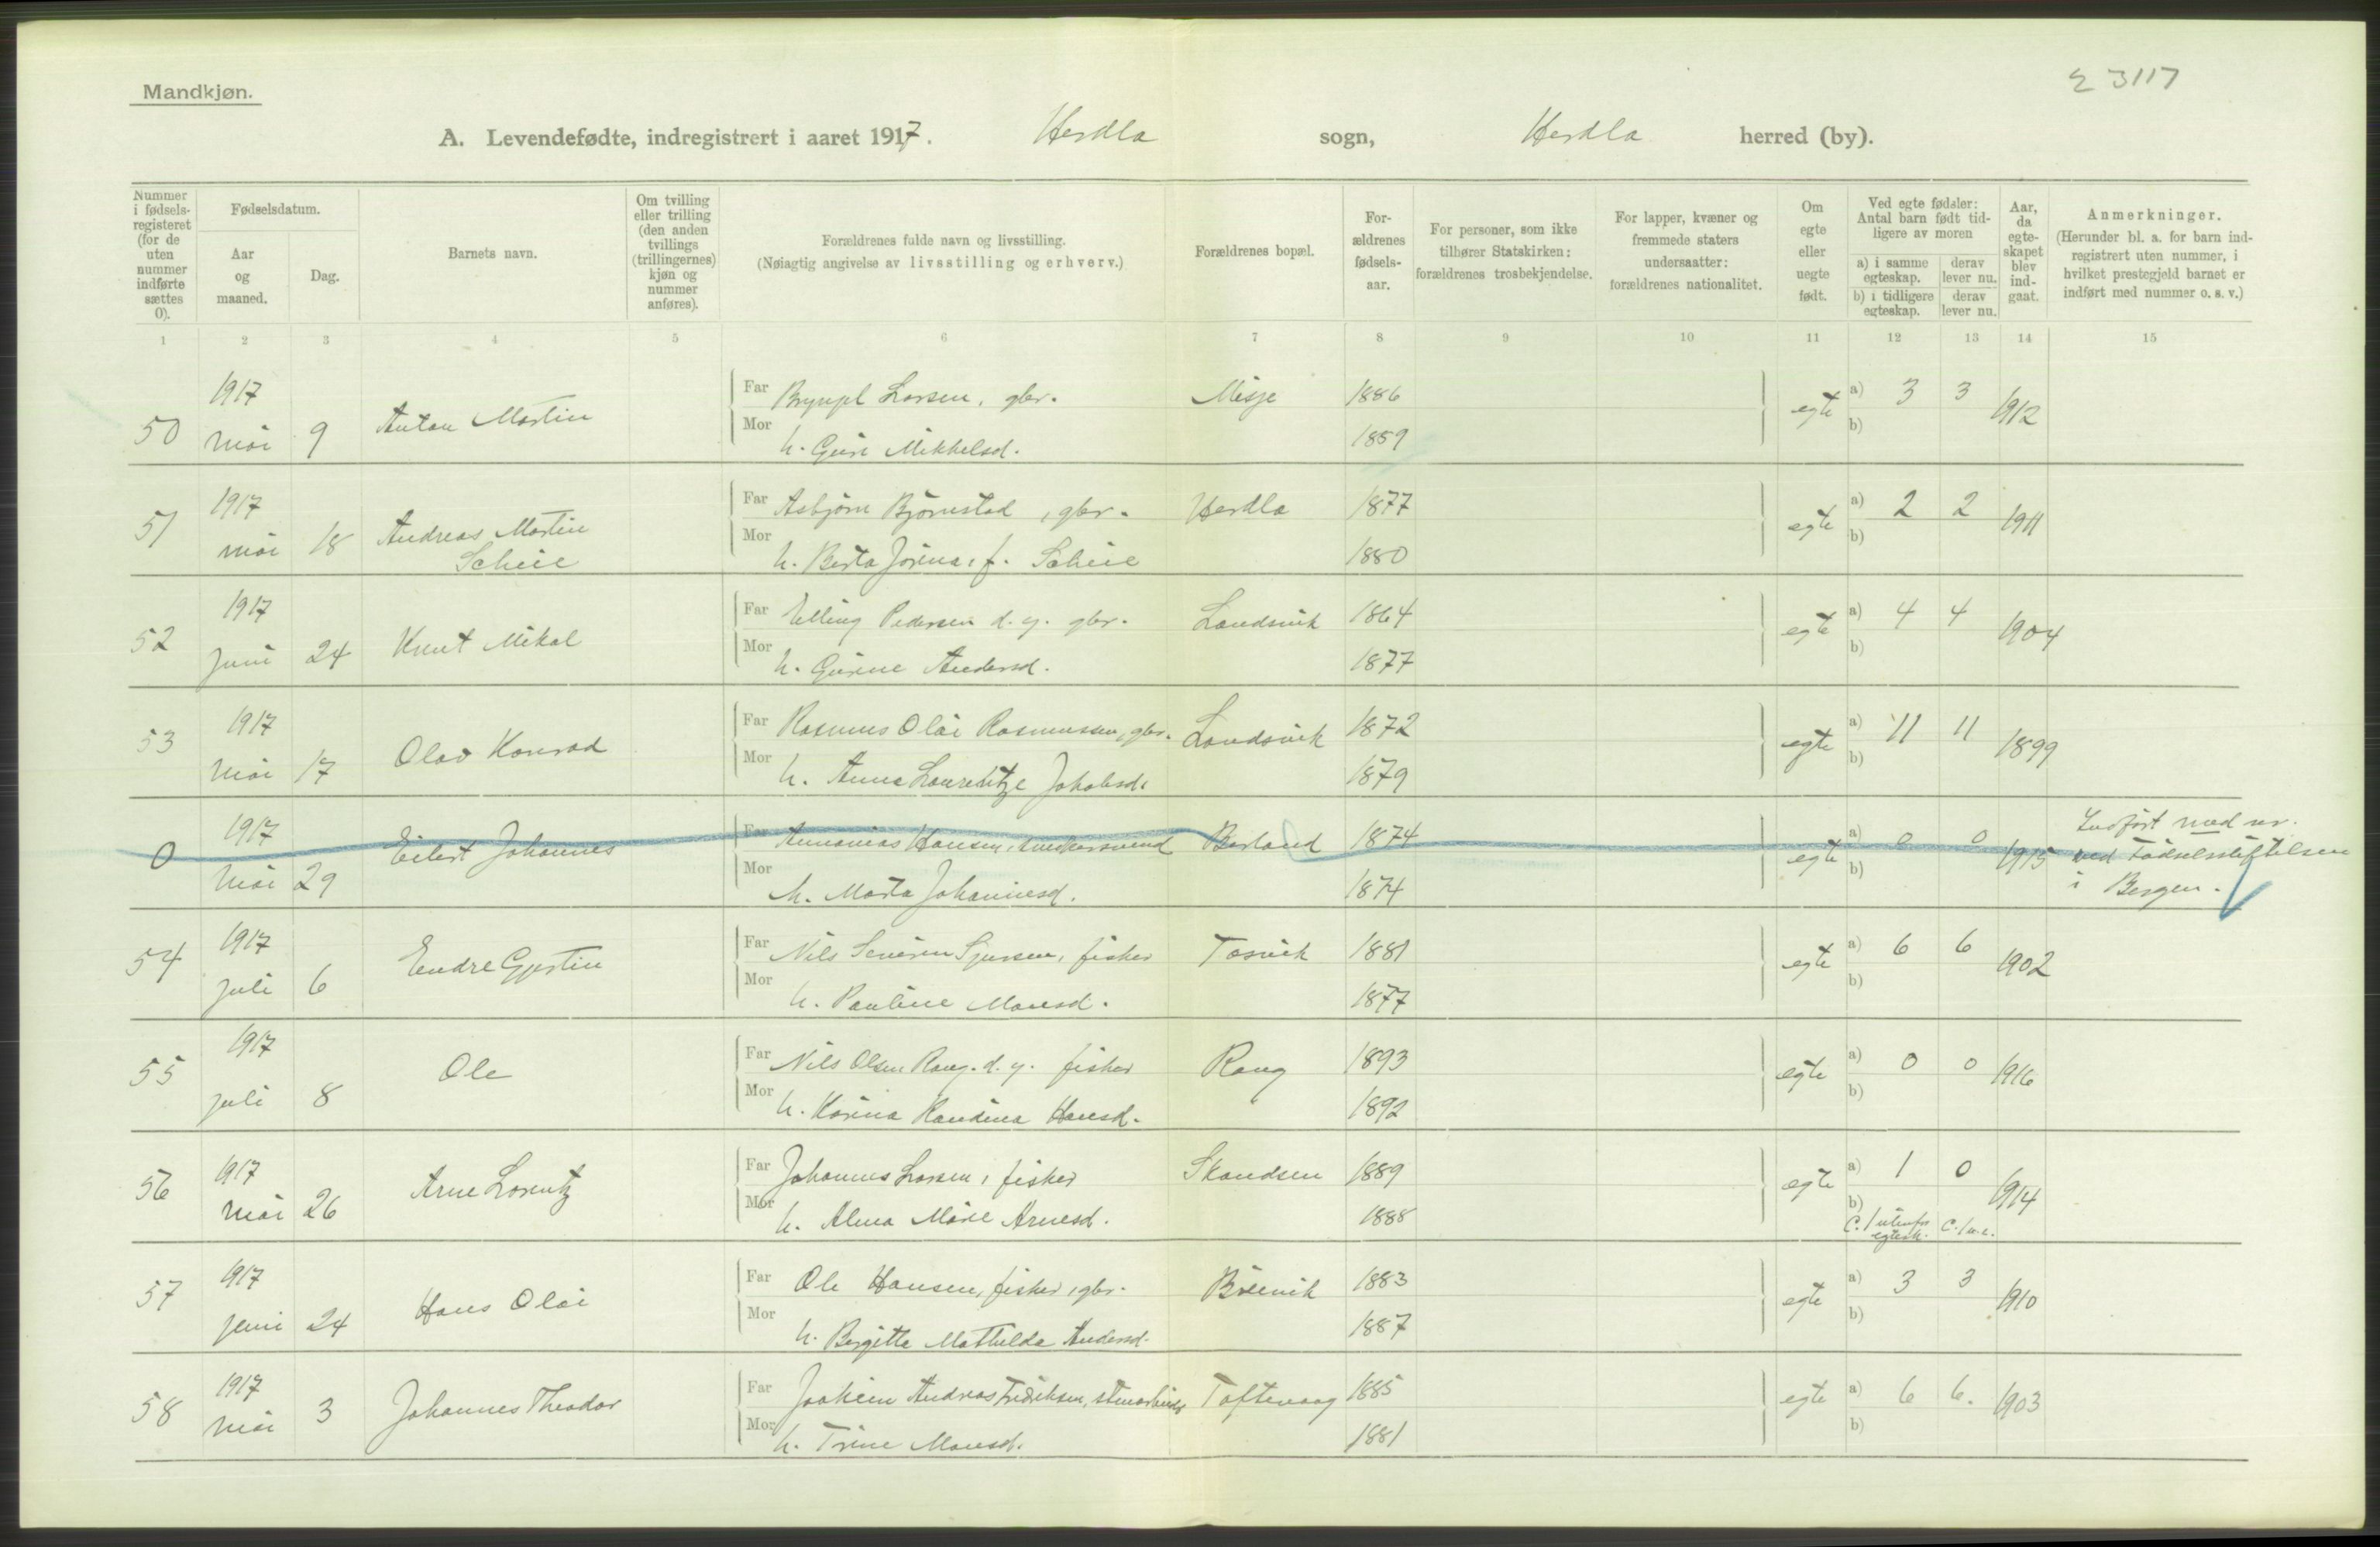 Σ 3117
Mandkjøn.
A. Levendefødte, indregistrert i aaret 1917. Herdla sogn, Herdla herred (by).
Nummer i fødsels-registeret (for de uten nummer indførte sættes 0).
Fødselsdatum.
Aar og maaned.
Dag.
Barnets navn.
Om tvilling eller trilling (den anden tvillings (trillingernes) kjøn og nummer anføres).
Forældrenes fulde navn og livsstilling.
(Nøiagtig angivelse av livsstilling og erhverv.)
Forældrenes bopæl.
For-ældrenes fødsels-aar.
For personer, som ikke tilhører Statskirken: forældrenes trosbekjendelse.
For lapper, kvæner og fremmede staters undersaatter: forældrenes nationalitet.
Om egte eller uegte født.
Ved egte fødsler: Antal barn født tid-ligere av moren
a) i samme egteskap. derav lever nu.
b) i tidligere egteskap. derav lever nu.
Aar, da egte-skapet blev ind-gaat.
Anmerkninger.
(Herunder bl. a. for barn ind-registrert uten nummer, i hvilket prestegjeld barnet er indført med nummer o. s. v.)
1 2 3 4 5 6 7 8 9 10 11 12 13 14 15
50 1917 mai 9 Anton Martin
Far Larsen, gbr. Misje 1886 egte a) 3 3 1912
Mor h. Guri Mikkelsd. 1889 b)
51 1917 mai 18 Andreas Martin Scheie
Far Asbjørn Bjørnstad, gbr. Herdla 1877 egte a) 2 2 1911
Mor h. Berta Jørina, f. Scheie 1880 b)
52 1917 juni 24 Knut Mikal
Far Elling Pedersen d. y. gbr. Landsvik 1864 egte a) 4 4 1904
Mor h. Gurine Andersd. 1877 b)
53 1917 mai 17 Olav Konrad
Far Rasmus Olai Rasmussen, gbr. Landsvik 1872 egte a) 11 11 1899
Mor h. Anna Laurentze Jakobsd. 1879 b)
0 1917 mai 29 Eilert Johannes
Far Annanias Hansen, snedkersvend Berland 1874 egte a) 0 0 1915 Indført med nr. ved Fødselsstiftelsen i Bergen.
Mor h. Marta Johannesd. 1874 b)
54 1917 juli 6 Endre Gjertin
Far Nils Severin Sjursen, fisker Tosvik 1881 egte a) 6 6 1902
Mor h. Pauline Monsd. 1877 b)
55 1917 juli 8 Ole
Far Nils Olsen Rong. d. y. fisker Rong 1893 egte a) 0 0 1916
Mor h. Karina Randina Hansd. 1892 b)
56 1917 mai 26 Arne Lorentz
Far Johannes Larsen, fisker Skandsen 1889 egte a) 1 0 1914
Mor h. Alma Marie Arnesd. 1888 b)
c. 1 utenfor egtesk. c. 1 u. e.
57 1917 juni 24 Hans Olai
Far Ole Hansen, fisker, gbr. Breivik 1883 egte a) 3 3 1910
Mor h. Bergitta Mathilda Andersd. 1887 b)
58 1917 mai 3 Johannes Theodor
Far Joakim Andreas Fredriksen, stenarbeider Toftevaag 1885 egte a) 6 6. 1903
Mor h. Trine Monsd. 1881 b)